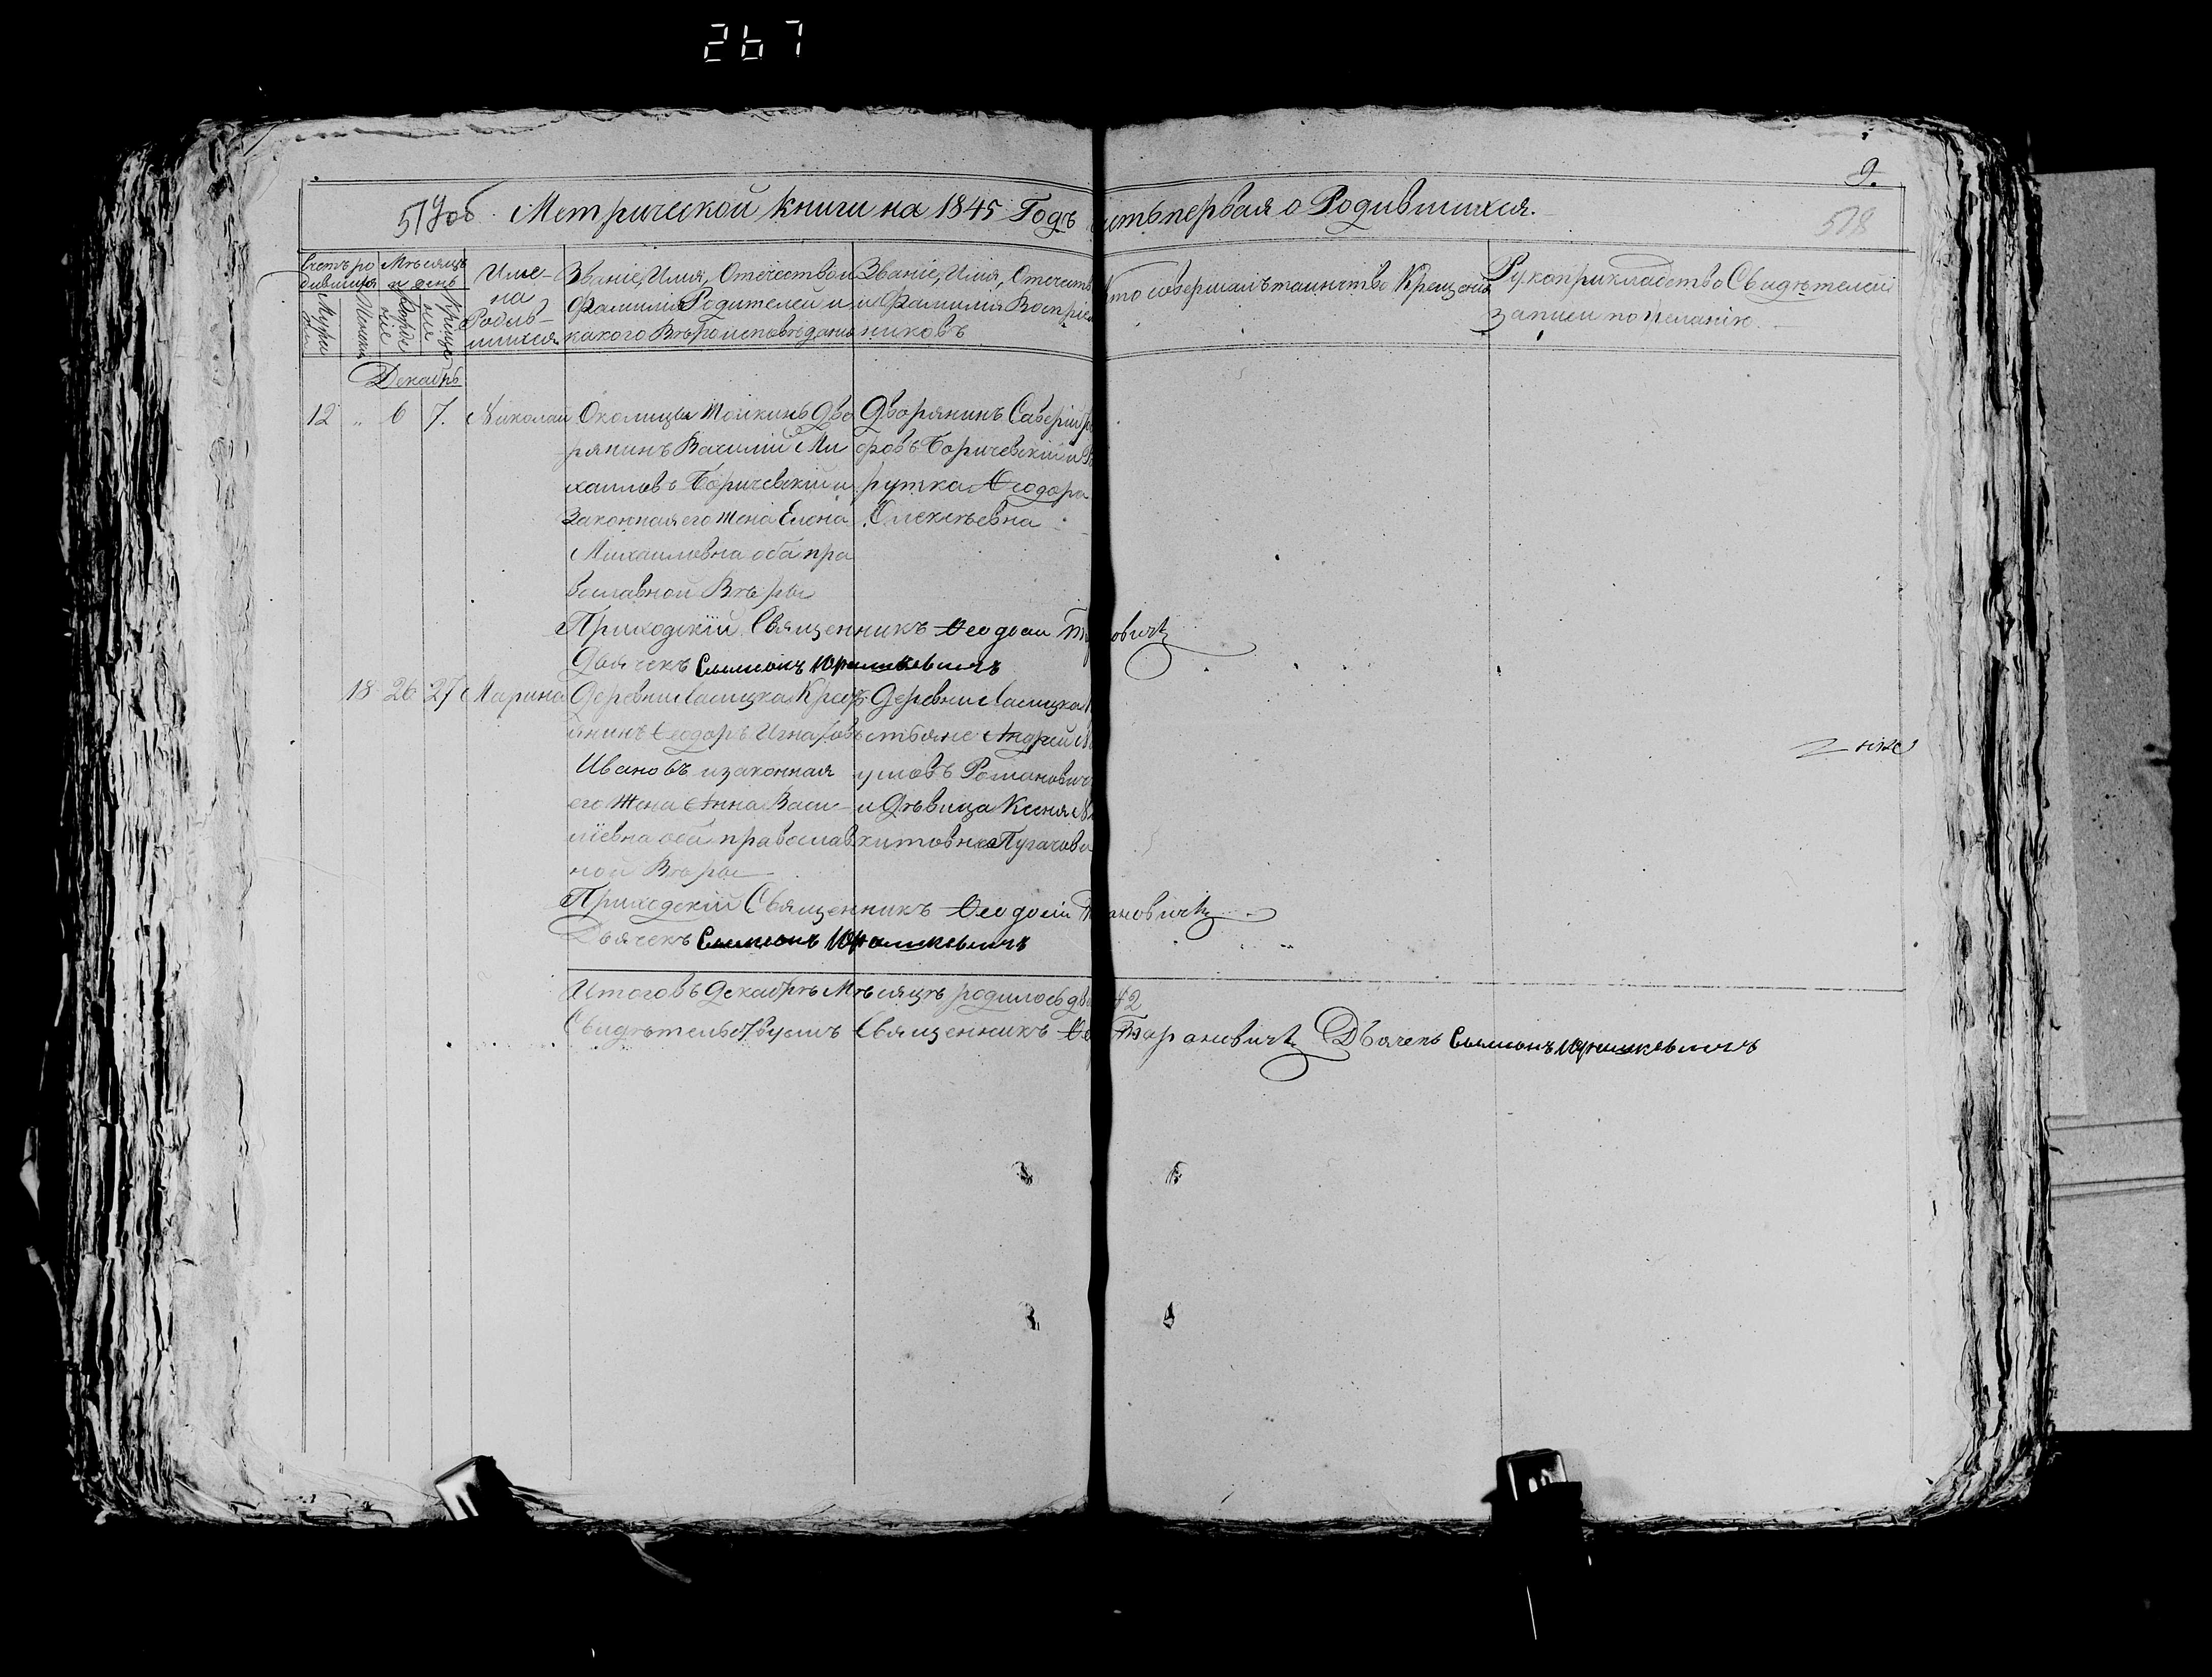 267
9.
517об. Метрической книги на 1845 Годъ
сть первая о Родившихся.
518
Счетъ ро
дившихся
Мѣсяцъ
и день
Муже
Женск
Рожде
ніе
Креще
ніе
Име-
на
Родив-
шихся
Званіе, Имя, Отечество и
Фамилія Родителей и
какого Вѣроисповѣданія
Званіе, Имя, Отечеств
и Фамилія Воспріем
никовъ
Кто совершалъ таинство Крещенія
Рукоприкладство Свидѣтелей
записи по желанію.
Декабрь
12 " 6 7. Николай
Околицы Мойкинъ Дво
рянинъ Василій Ми
хаиловъ Боричевскій и
Законная его жена Елена
Михаиловна оба пра
вославной Вѣры
Дворянинъ Саверій
ровъ Боричевскій и
рутка Ѳеодора
Олексѣевна
Приходскій Священникъ Ѳеодосій
Дьячекъ Сымонъ Юрашкевичъ
18 26 27 Марина
Деревни Ласицка Крест
инъ Ѳеодоръ
Ивановъ и законная
его жена Анна Васи-
ліевна оба православ
ной Вѣры
Деревни Ласицка
стьяне Андрей
умовъ Романович
и Дѣвица Ксеня
китовна Пугачова
Приходскій Священникъ Ѳеодосій Тарановичъ
Дьячекъ Сымонъ Юрашкевичъ
Итого въ Декабрѣ Мѣсяцѣ родилось 2
Свидѣтельствуемъ Священникъ Ѳе Тарановичъ Дьячекъ Сымонъ Юрашкевичъ